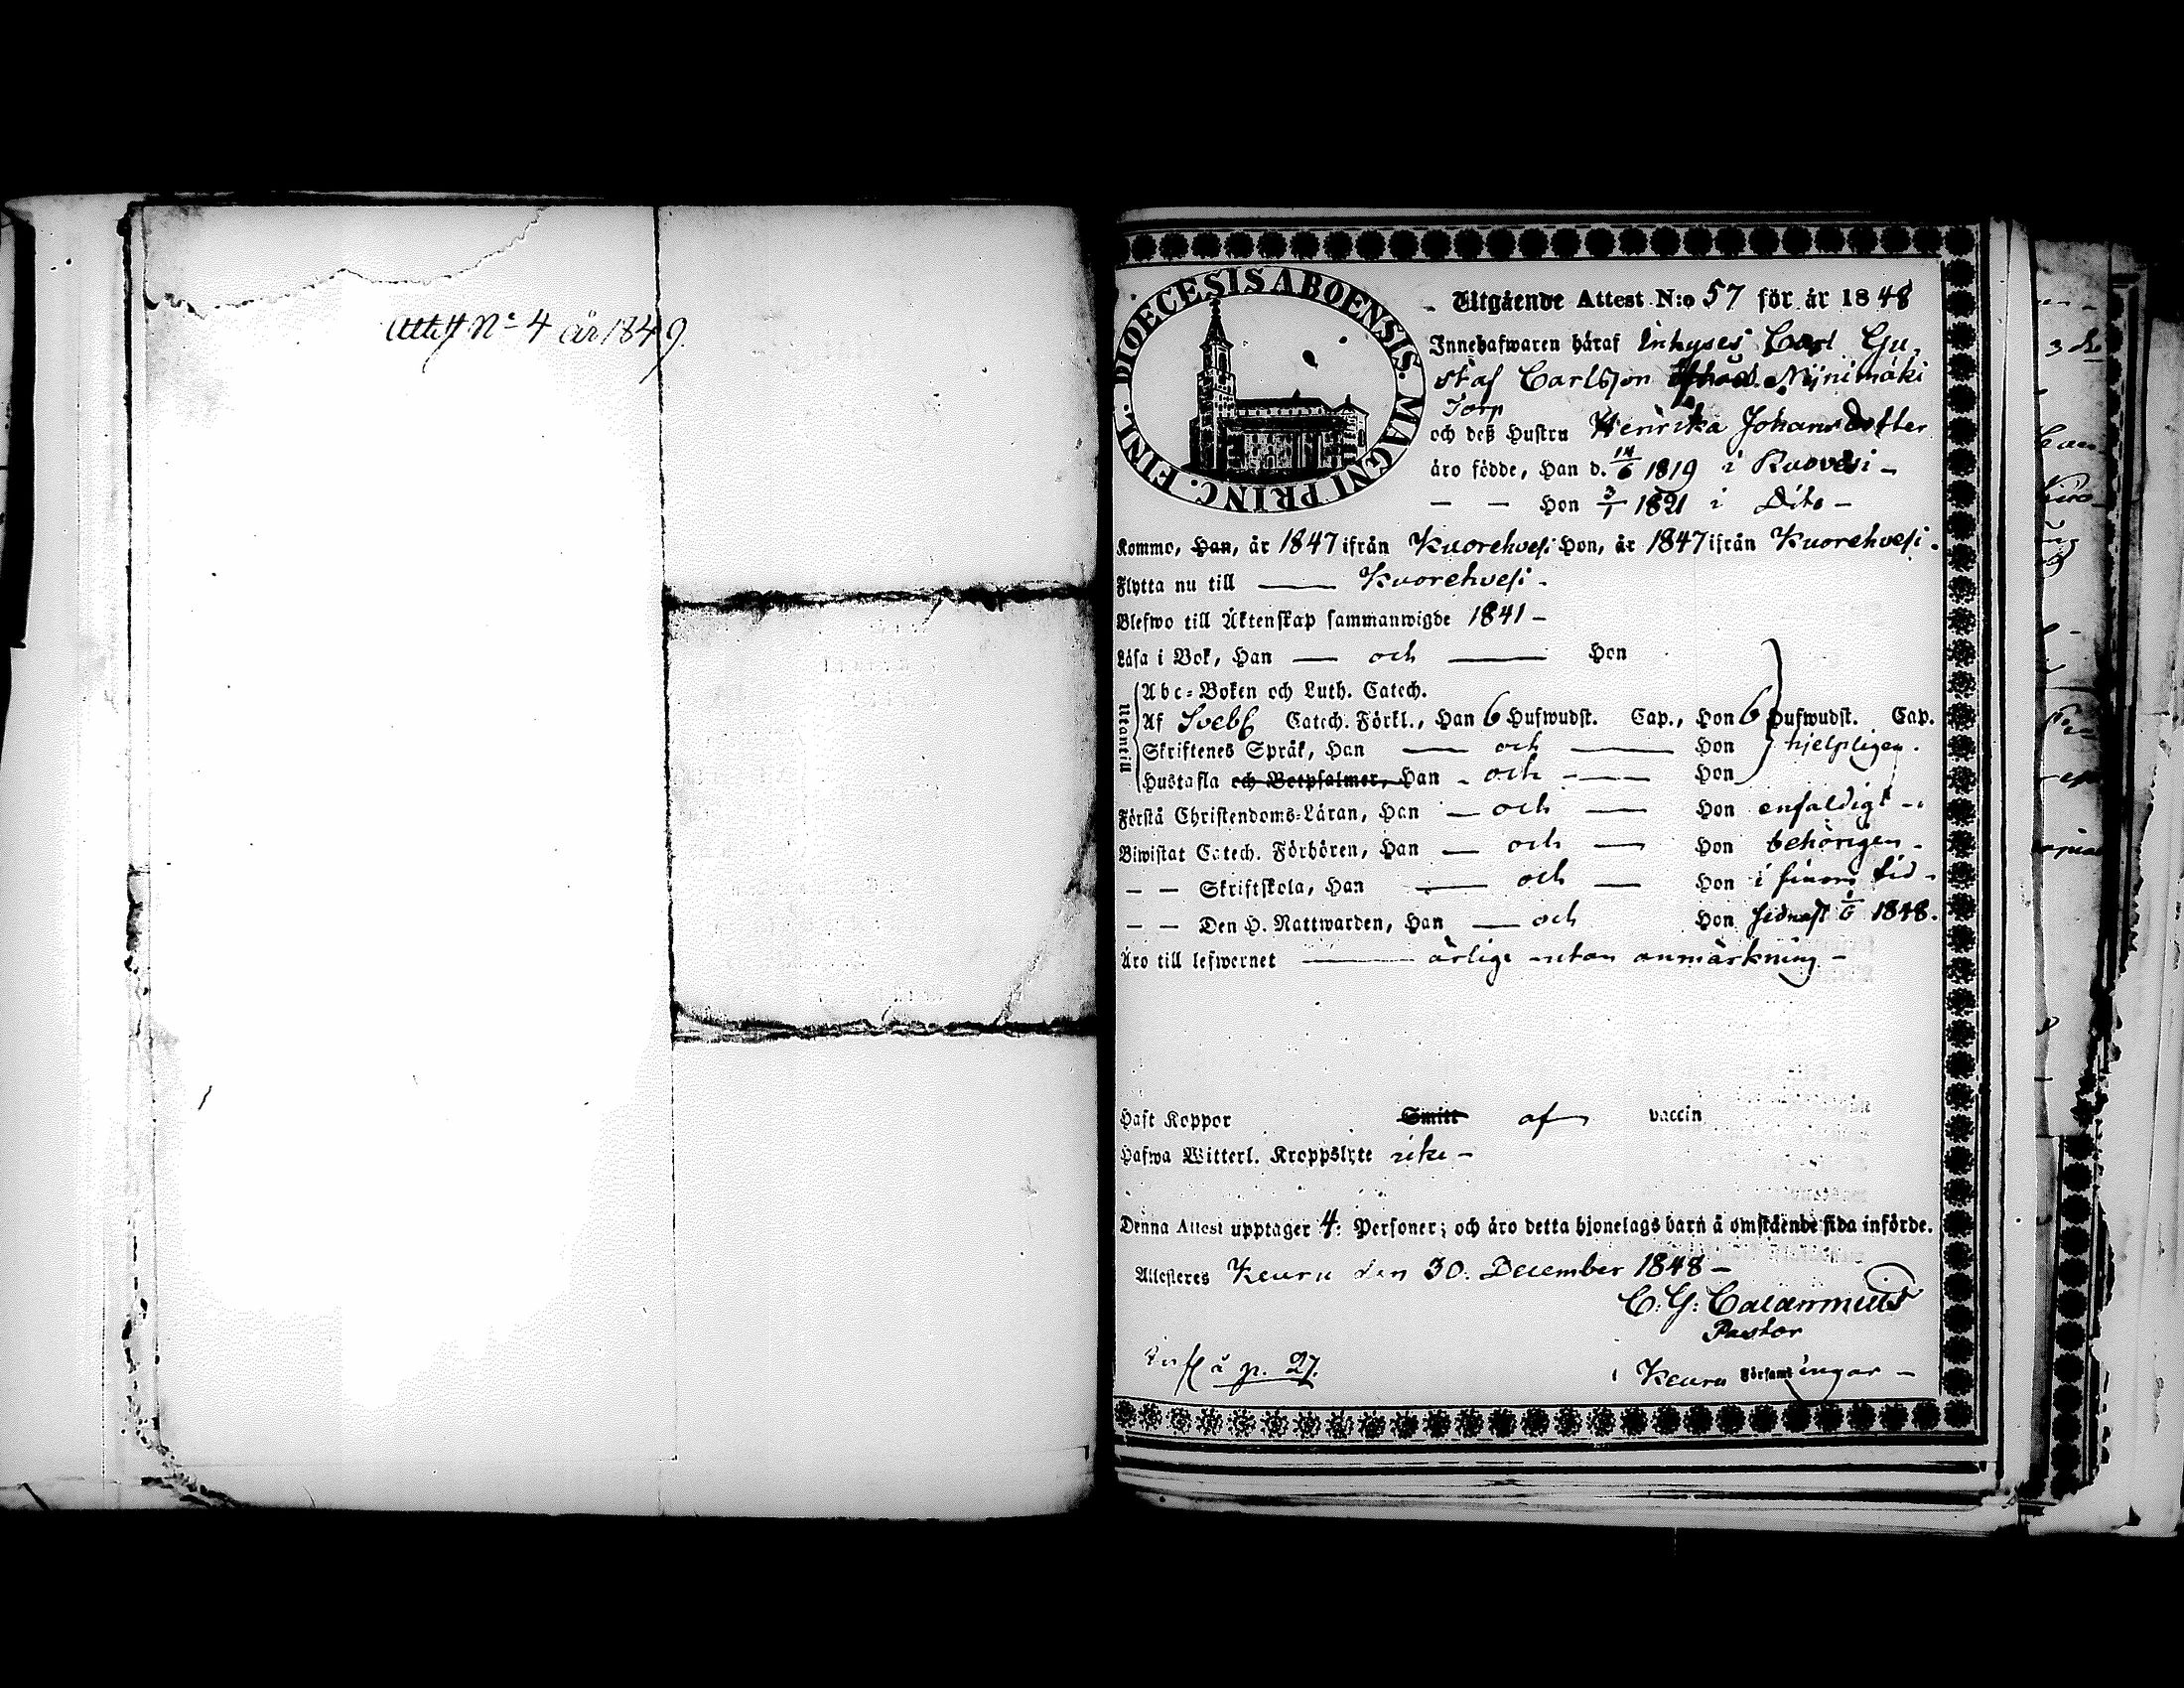 Attest No 4 år 1849.
DIOECESIS ABOENSIS. MAGNI PRINC. FINL.
Utgående Attest N:o 57 för år 1848
Innehafwaren häraf Inhyses Carl Gu
staf Carlsson Niinimäki
Torp
och deß Hustru Henrika Johansdotter
äro födde, Han d. 14/6 1819 i Ruovesi –
— — Hon 3/1 1821 i Dito –
Kommo, Han, år 1847 ifrån Kuorehvesi Hon, år 1847 ifrån Kuorehvesi.
Flytta nu till —— Kuorehvesi –
Blefwo till Äktenskap sammanwigde 1841 –
Läsa i Bok, Han — och —— Hon
Utantill
Abc-Boken och Luth. Catech.
Af Sveb Catech. Förkl., Han 6 Hufwudst. Cap., Hon 6 Hufwudst. Cap.
Skriftenes Språk, Han —— och —— Hon hjelpligen.
Hustafla och Botpsalmer, Han – och – —— Hon
Förstå Christendoms-Läran, Han — och —— Hon enfaldigt –
Biwistat Catech. Förhören, Han — och — Hon behörigen –
— — Skriftskola, Han —— och — Hon i sinom tid –
— — Den H. Nattwarden, Han — och Hon sidnast 1848.
Äro till lefwernet —— ärlige utan anmärkning –
Haft Koppor Smitt af vaccin
Hafwa Witterl. Kroppslyte icke –
Denna Attest upptager 4: Personer; och äro detta hjonelags barn å omstående sida införde.
Attesteres Keuru den 30. December 1848 –
C. G. Calamnius
Pastor
Inf å p. 27.
i Keuru Församlingar –